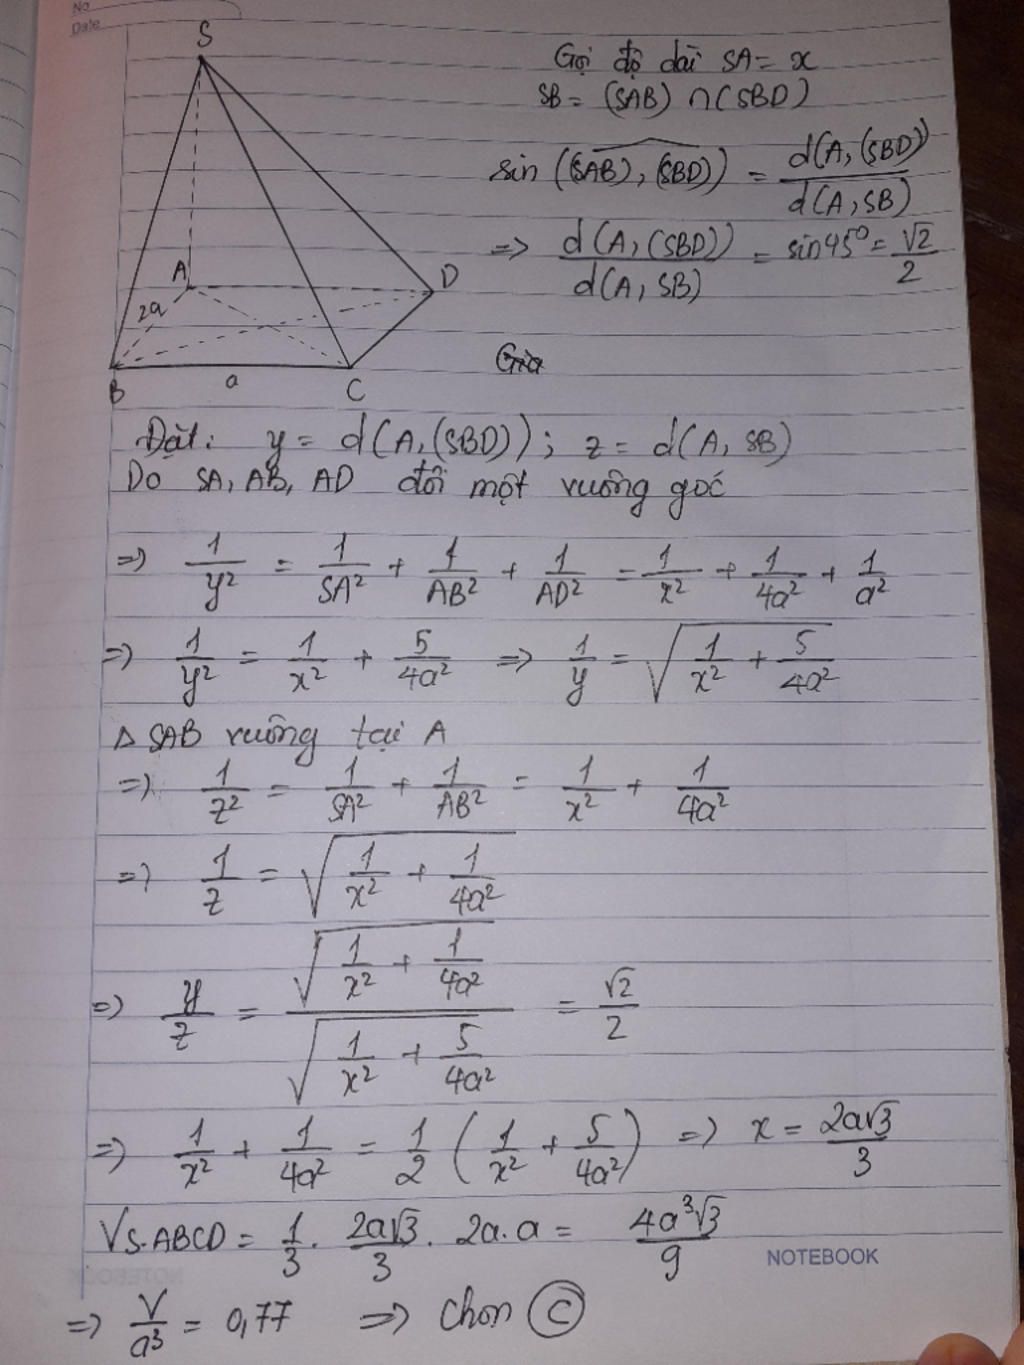 No
Date
S
Gọi độ dài SA = x
SB = (SAB) ∩ (SBD)
sin ((SAB), (SBD)) = d(A, (SBD)) / d(A, SB)
=> d(A, (SBD)) / d(A, SB) = sin45° = √2/2
A
D
2a
B
a
C
Đặt: y = d(A, (SBD)); z = d(A, SB)
Do SA, AB, AD đôi một vuông góc
=> 1/y² = 1/SA² + 1/AB² + 1/AD² = 1/x² + 1/4a² + 1/a²
=> 1/y² = 1/x² + 5/4a² => 1/y = √(1/x² + 5/4a²)
Δ SAB vuông tại A
=> 1/z² = 1/SA² + 1/AB² = 1/x² + 1/4a²
=> 1/z = √(1/x² + 1/4a²)
=> y/z = √(1/x² + 1/4a²) / √(1/x² + 5/4a²) = √2/2
=> 1/x² + 1/4a² = 1/2 (1/x² + 5/4a²) => x = 2a√3/3
VS.ABCD = 1/3 . 2a√3/3 . 2a.a = 4a³√3/9
NOTEBOOK
=> V/a³ = 0,77 => Chọn C